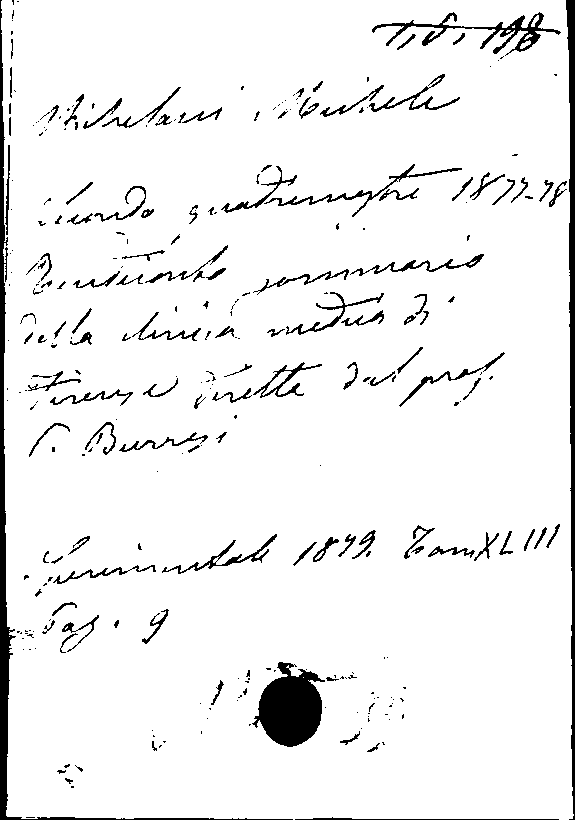 1, 6, 198
Michelacci Michele
Secondo quadrimestre 1877-78
Rendiconto sommario
della clinica medica di
Firenze diretta dal prof.
P. Burresi
Sperimentale 1879. Tom XLIII
Pag. 9